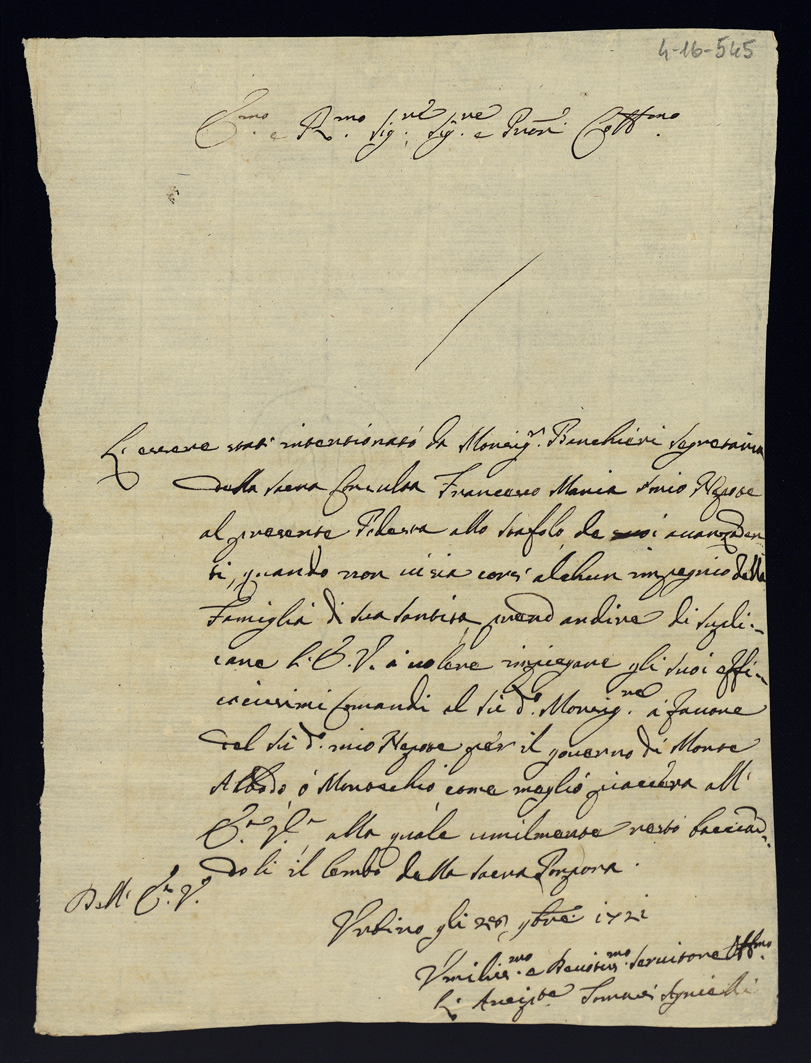 4-16-545
E.mo e R.mo Sig.re Sig.re e Pron Coll.mo
L'essere stati intentionato da Monsig.r Banchieri Segretario
della Sacra Consulta Francesco Maria mio Nepote
al presente Podesta allo Stafolo de suoi auanzaden
ti, quando non ui sia cors' alchun impegnio della
Famiglia di sua santita, prend andire di supli-
care l'E. V. a uolere impiegare gli suoi effi-
cacissimi Comandi al su d.o Monsig.re a fauore
del su d.o mio Nepote per il gouerno di Monte
Albodo ó Monsechio come meglio piacera all'
E.a V.a alla quale umilmente resto bacciad-
doli il lembo della sacra Porpora.
Dell' E.a V.a
Urbino gli 9bre 1721
Umiliss.mo e Deuotiss.mo Seruitore Obb.mo
L'Arcip.te